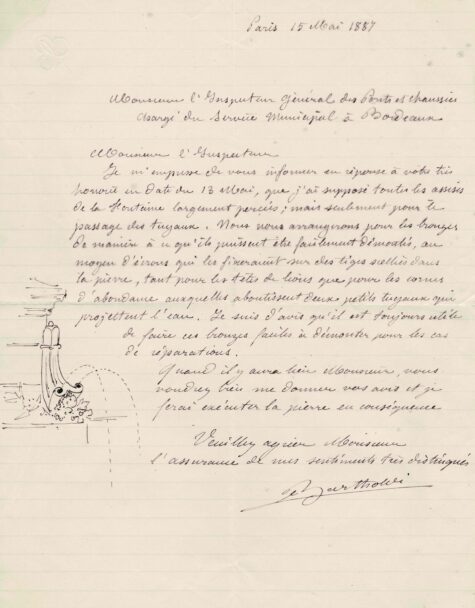 Paris 15 Mai 1887
Monsieur l'Inspecteur Général des Ponts et chaussées
chargé du Service Municipal à Bordeaux
Monsieur l'Inspecteur
Je m'empresse de vous informer en réponse à votre très
honorée en date du 13 Mai, que j'ai supposé toutes les assises
de la Fontaine largement percées; mais seulement pour le
passage des tuyaux. Nous nous arrangerons pour les bronzes
de manière à ce qu'ils puissent être facilement démontés, au
moyen d'écrous qui les fixeraient sur des tiges scellées dans
la pierre, tant pour les têtes de lions que pour les cornes
d'abondance auxquelles aboutissent deux petits tuyaux qui
projettent l'eau. Je suis d'avis qu'il est toujours utile
de faire ces bronzes faciles à démonter pour les cas
de réparations.
Quand il y aura lieu Monsieur, vous
voudrez bien me donner vos avis et je
ferai exécuter la pierre en conséquence
Veuillez agréer Monsieur
l'assurance de mes sentiments très distingués
Bartholdi